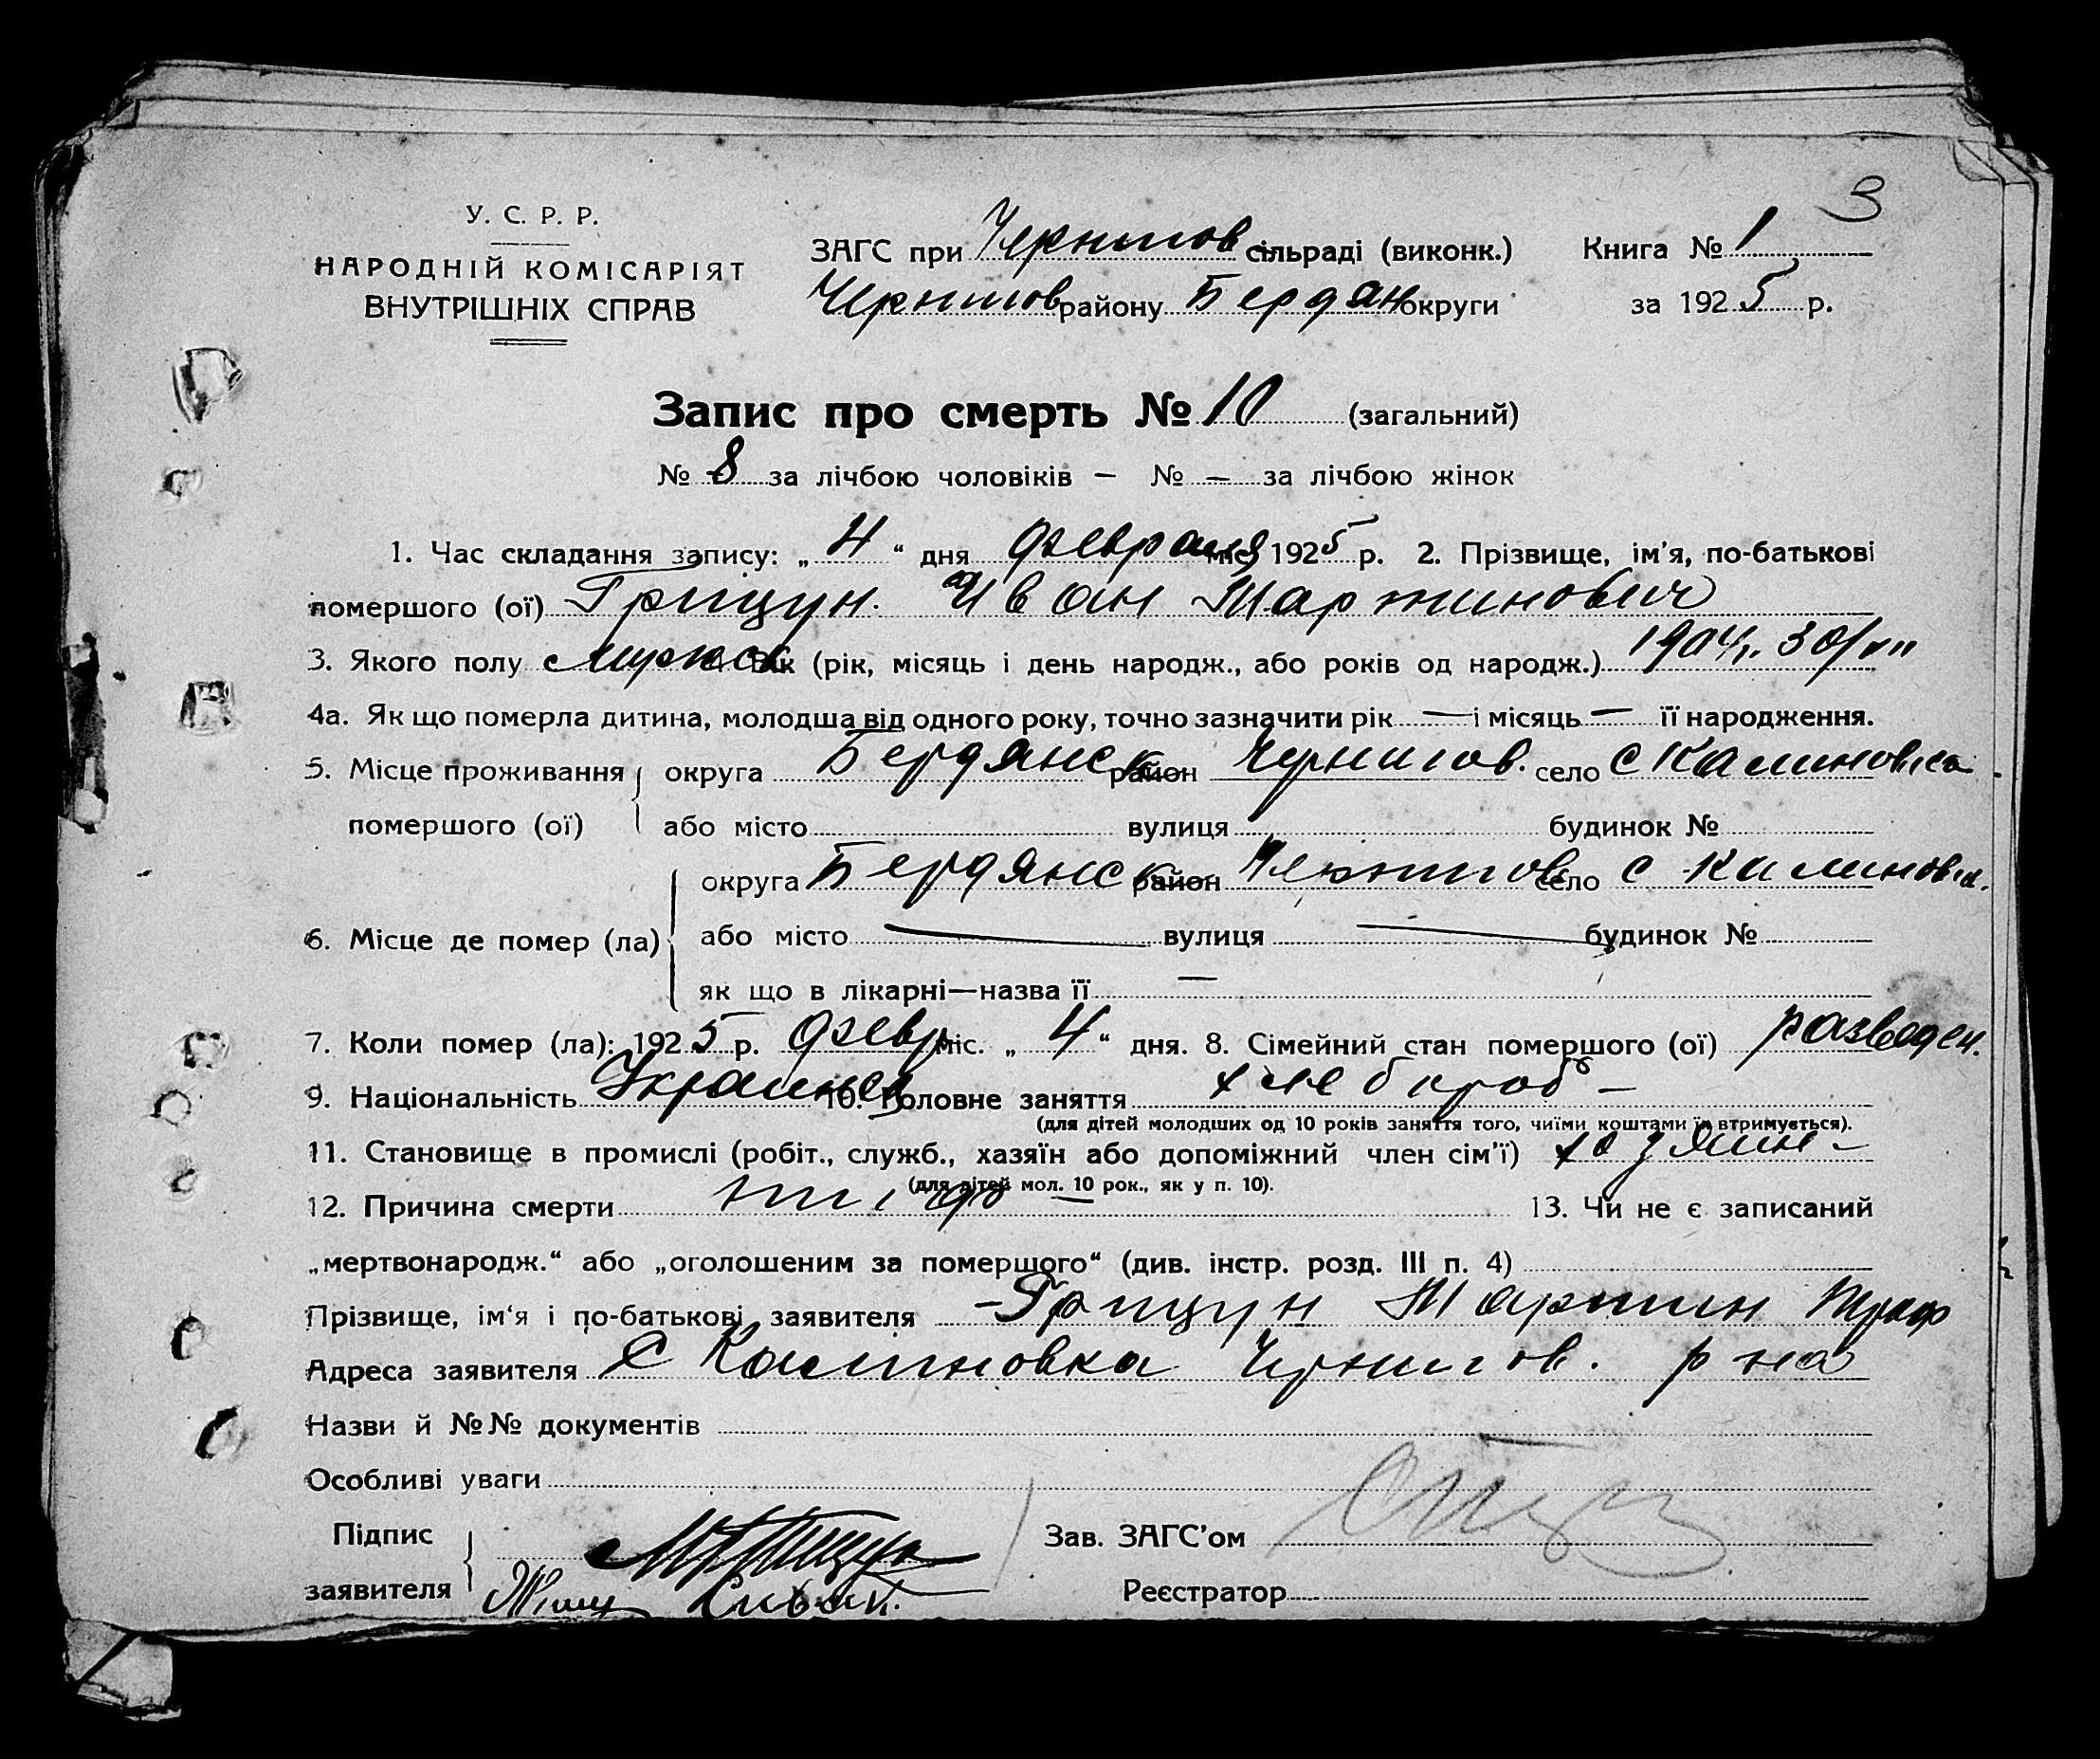 3
У. С. Р. Р.
НАРОДНІЙ КОМІСАРІЯТ
ВНУТРІШНІХ СПРАВ
ЗАГС при Чернигов сільраді (виконк.) Книга № 1
Чернигов району Бердян округи за 1925 р.
Запис про смерть № 10 (загальний)
№ 8 за лічбою чоловіків — № — за лічбою жінок
1. Час складання запису: „ 4 “ дня февраля міс. 1925 р. 2. Прізвище, ім’я, по-батькові
помершого (ої) Грицун. Иван Мартинович
3. Якого полу мужск Вік (рік, місяць і день народж., або років од народж.) 1904 г. 30/
4а. Як що померла дитина, молодша від одного року, точно зазначити рік — і місяць — її народження.
5. Місце проживання округа Бердянск район Чернигов. село с Калиновка
помершого (ої) або місто вулиця будинок №
округа Бердянск район Чернигов село с Калиновка.
6. Місце де помер (ла) або місто — вулиця — будинок №
як що в лікарні—назва її —
7. Коли помер (ла): 1925 р. февр міс. „ 4 “ дня. 8. Сімейний стан помершого (ої) разведен.
9. Національність Украинец 10. Головне заняття хлебороб —
(для дітей молодших од 10 років заняття того, чиїми коштами їх втримується).
11. Становище в промислі (робіт., служб., хазяїн або допоміжний член сім’ї) хозяин —
(для дітей мол. 10 рок., як у п. 10).
12. Причина смерти тиф — 13. Чи не є записаний
„мертвонародж.“ або „оголошеним за помершого“ (див. інстр. розд. III п. 4)
Прізвище, ім‘я і по-батькові заявителя — Грицун Мартин
Адреса заявителя С Калиновка Чернигов. р на
Назви й №№ документів —
Особливі уваги
Підпис Зав. ЗАГС’ом
заявителя Реєстратор